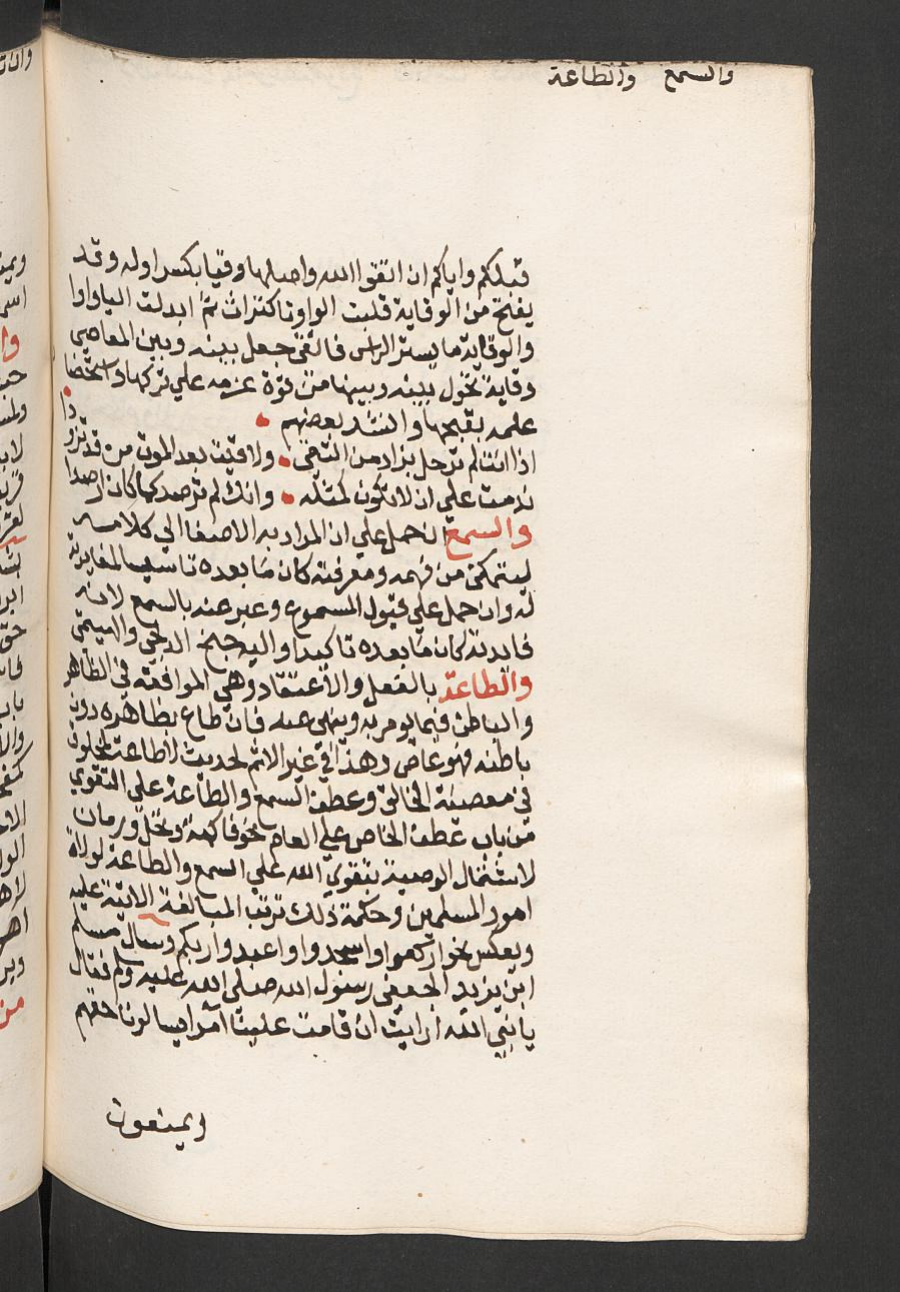 والسمع والطاعة
قبلكم واياكم ان اتقوا الله واصلها وقيا بكسر اوله وقد
يفتح من الوقاية قلبت الواو تا كتراث ثم ابدلت اليا واوا
والوقاية ما يستر الراس فالتقي جعل بينه وبين المعاصي
وقاية تحول بينه وبينها من قوة عزمه علي تركها واستحضا
علمه بقبحها وانشد بعضهم
اذا انت لم ترحل بزاد من التقي ولاقيت بعد الموت من قد تزودا
ندمت علي ان لا تكون كمثله وانك لم ترصد كما كان ارصدا
والسمع ان حمل علي ان المراد به الاصغا الي كلامه
ليتمكن من فهمه ومعرفته كان ما بعده تاسيسا لمغايرته
له وان حمل علي قبول المسموع وعبر عنه بالسمع لانه
فايدته كان ما بعده تاكيدا واليه جنح الدلجي والهيتمي
والطاعة بالفعل والاعتقاد وهي الموافقة في الظاهر
والباطن فيما يومر به وينهي عنه فان طاع بظاهره دون
باطنه فهو عاص وهذا في غير الاثم لحديث لا طاعة لمخلوق
في معصية الخالق وعطف السمع والطاعة علي التقوي
من باب عطف الخاص علي العام نحو فاكهة ونخل ورمان
لاشتمال الوصية بتقوي الله علي السمع والطاعة لولاة
امور المسلمين وحكمة ذلك ترتب المبالغة الاتية عليه
وبعكس نحو اركعوا واسجدوا واعبدوا ربكم وسال مسلم
ابن يزيد الجعفي رسول الله صلي الله عليه وسلم فقال
يا نبي الله ارايت ان قامت علينا امرا يسالونا حقهم
ويمنعون